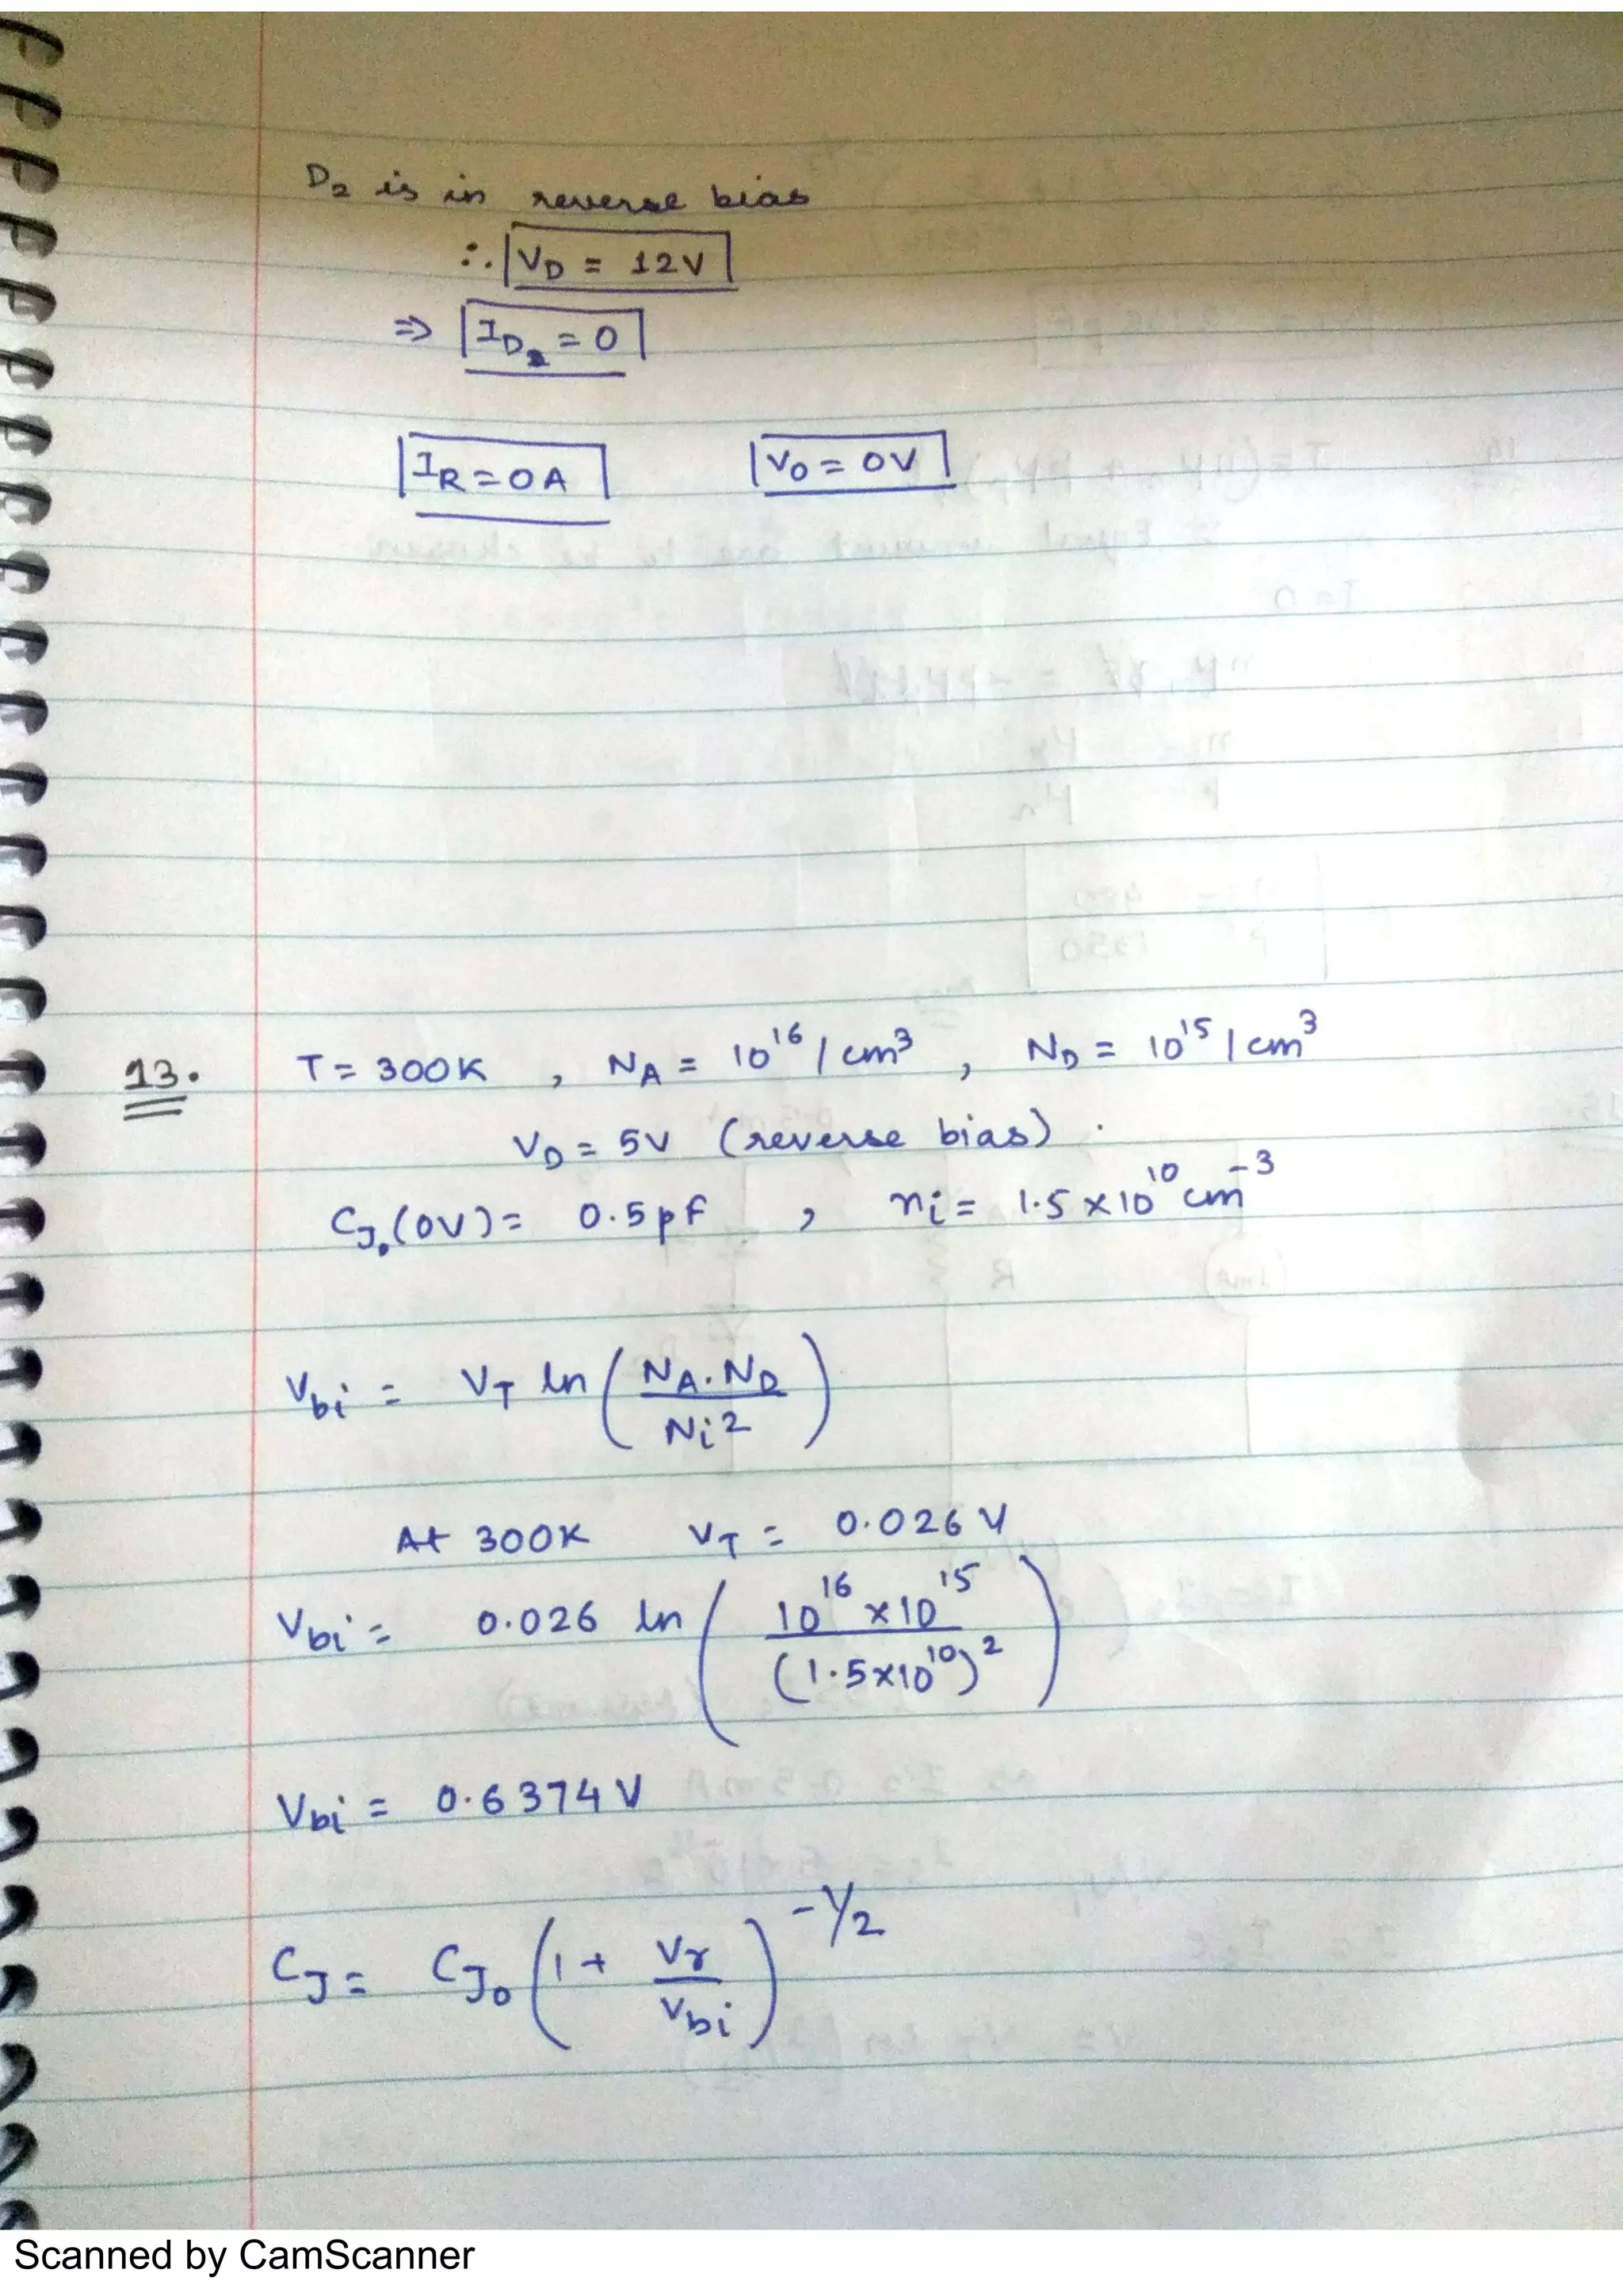 D₂ is in reverse bias
∴ V_D = 12V
⇒ I_D₂ = 0
I_R = 0A V₀ = 0V
13. T = 300K , N_A = 10¹⁶/cm³ , N_D = 10¹⁵/cm³
V_D = 5V (reverse bias).
C_J₀(0V) = 0.5pf , n_i = 1.5×10¹⁰cm⁻³
V_bi = V_T ln(N_A.N_D / N_i²)
At 300K V_T = 0.026V
V_bi = 0.026 ln(10¹⁶×10¹⁵ / (1.5×10¹⁰)²)
V_bi = 0.6374V
C_J = C_J₀(1 + V_r / V_bi)^(-1/2)
Scanned by CamScanner